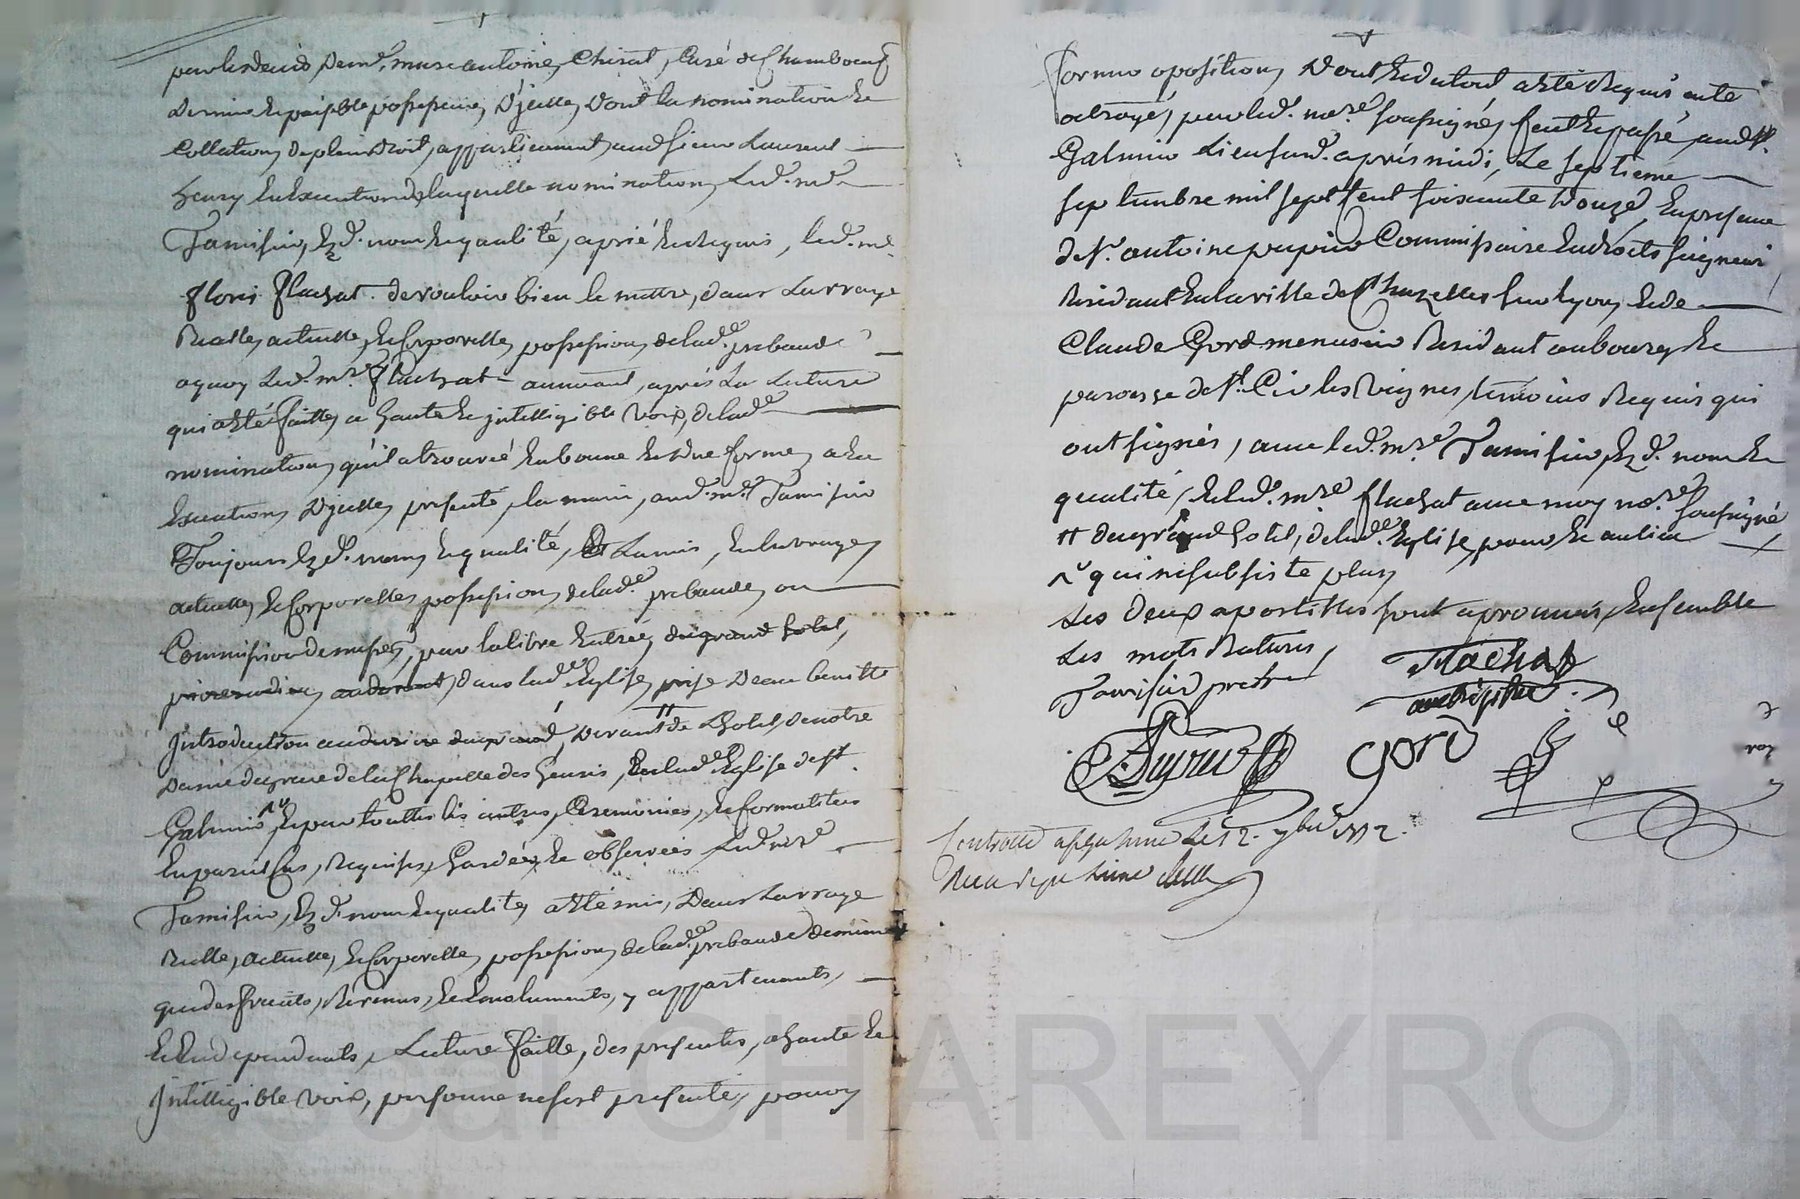 par le deceds de mre. marc antoine Chirat, Curé de Chambœuf
dernier Et paisible possesseur, D'jcelle, dont la nomination Et
Collation, de plein droit, appartiennent, aud sieur Laurent
henry En Execution de laquelle nomination, Led. mre
Tamisier, Ez d. nom Et qualité, a prié Et Requis, led. mre.
floris flachat. de vouloir bien le mettre, dans La vraye
Reelle, actuelle, Et Corporelle, possession, de lad.e prebande
a quoy Led. mre. flachat adherant, après La Lecture
qui a Eté faitte, a haute Et jntelligible Voix, de lad.e
nomination, qu'il a trouvée En bonne Et due forme, a En
Execution, D'jcelle, presenté, la main, aud. mre. Tamisier
Toujours Ez d. nom, Et qualité, Et La mis, En la vraye,
actuelle, Et Corporelle, possession, de lad.e prebande, ou
Commission de messes, par la libre Entrée, du grand hotel,
dans lad.e Eglise, prise D'eau benitte
Introduction devant de Lhotel, de notre
Dame de grace de la Chapelle des henris, En lad.e Eglise de st.
Galmier Et par touttes les autres, Ceremonies, Et formalitées
En pareil Cas, Requises, Gardées, Et observées Led. mre
Tamisier, Ez d. nom Et qualité, a Eté mis, Dans La vraye
Reelle, actuelle, Et Corporelle, possession, de lad.e prebande de même
que des fruits, Revenus, Et Emoluments, y appartenants,
Et En dependants, Lecture faitte, des presentes, a haute Et
Intelligible Voix, personne ne sest presenté, pour y
former oposition, Dont Et du tout a Eté Requis acte
octroyé, par led. nore. soussigné, fait Et passé, aud st.
Galmier Lieu susd. après midi, Le septieme
septembre mil sept Cent soixante Douze, En presence
de sr. antoine pupier Commissaire En droits seigneuriaux
Residant En la ville de Chazelles sur lyon, Et de
Claude Gord menusier Residant au bourg Et
paroisse de st. Cir les Vignes, temoins Requis qui
ont signés, avec led. mre. Tamisier, Ez d. nom Et
qualité, Et led. mre. flachat avec moy nore. soussigné
# du grand hotel, de lad.e Eglise, pour Et au lieu
qui ne subsiste plus,
Les deux apostilles sont aprouvées, Ensemble
Les mots Raturés,
Flachat
Tamisier pretre
Pupier
Gord
Controllé a st galmier Le 12. 7bre 1772.